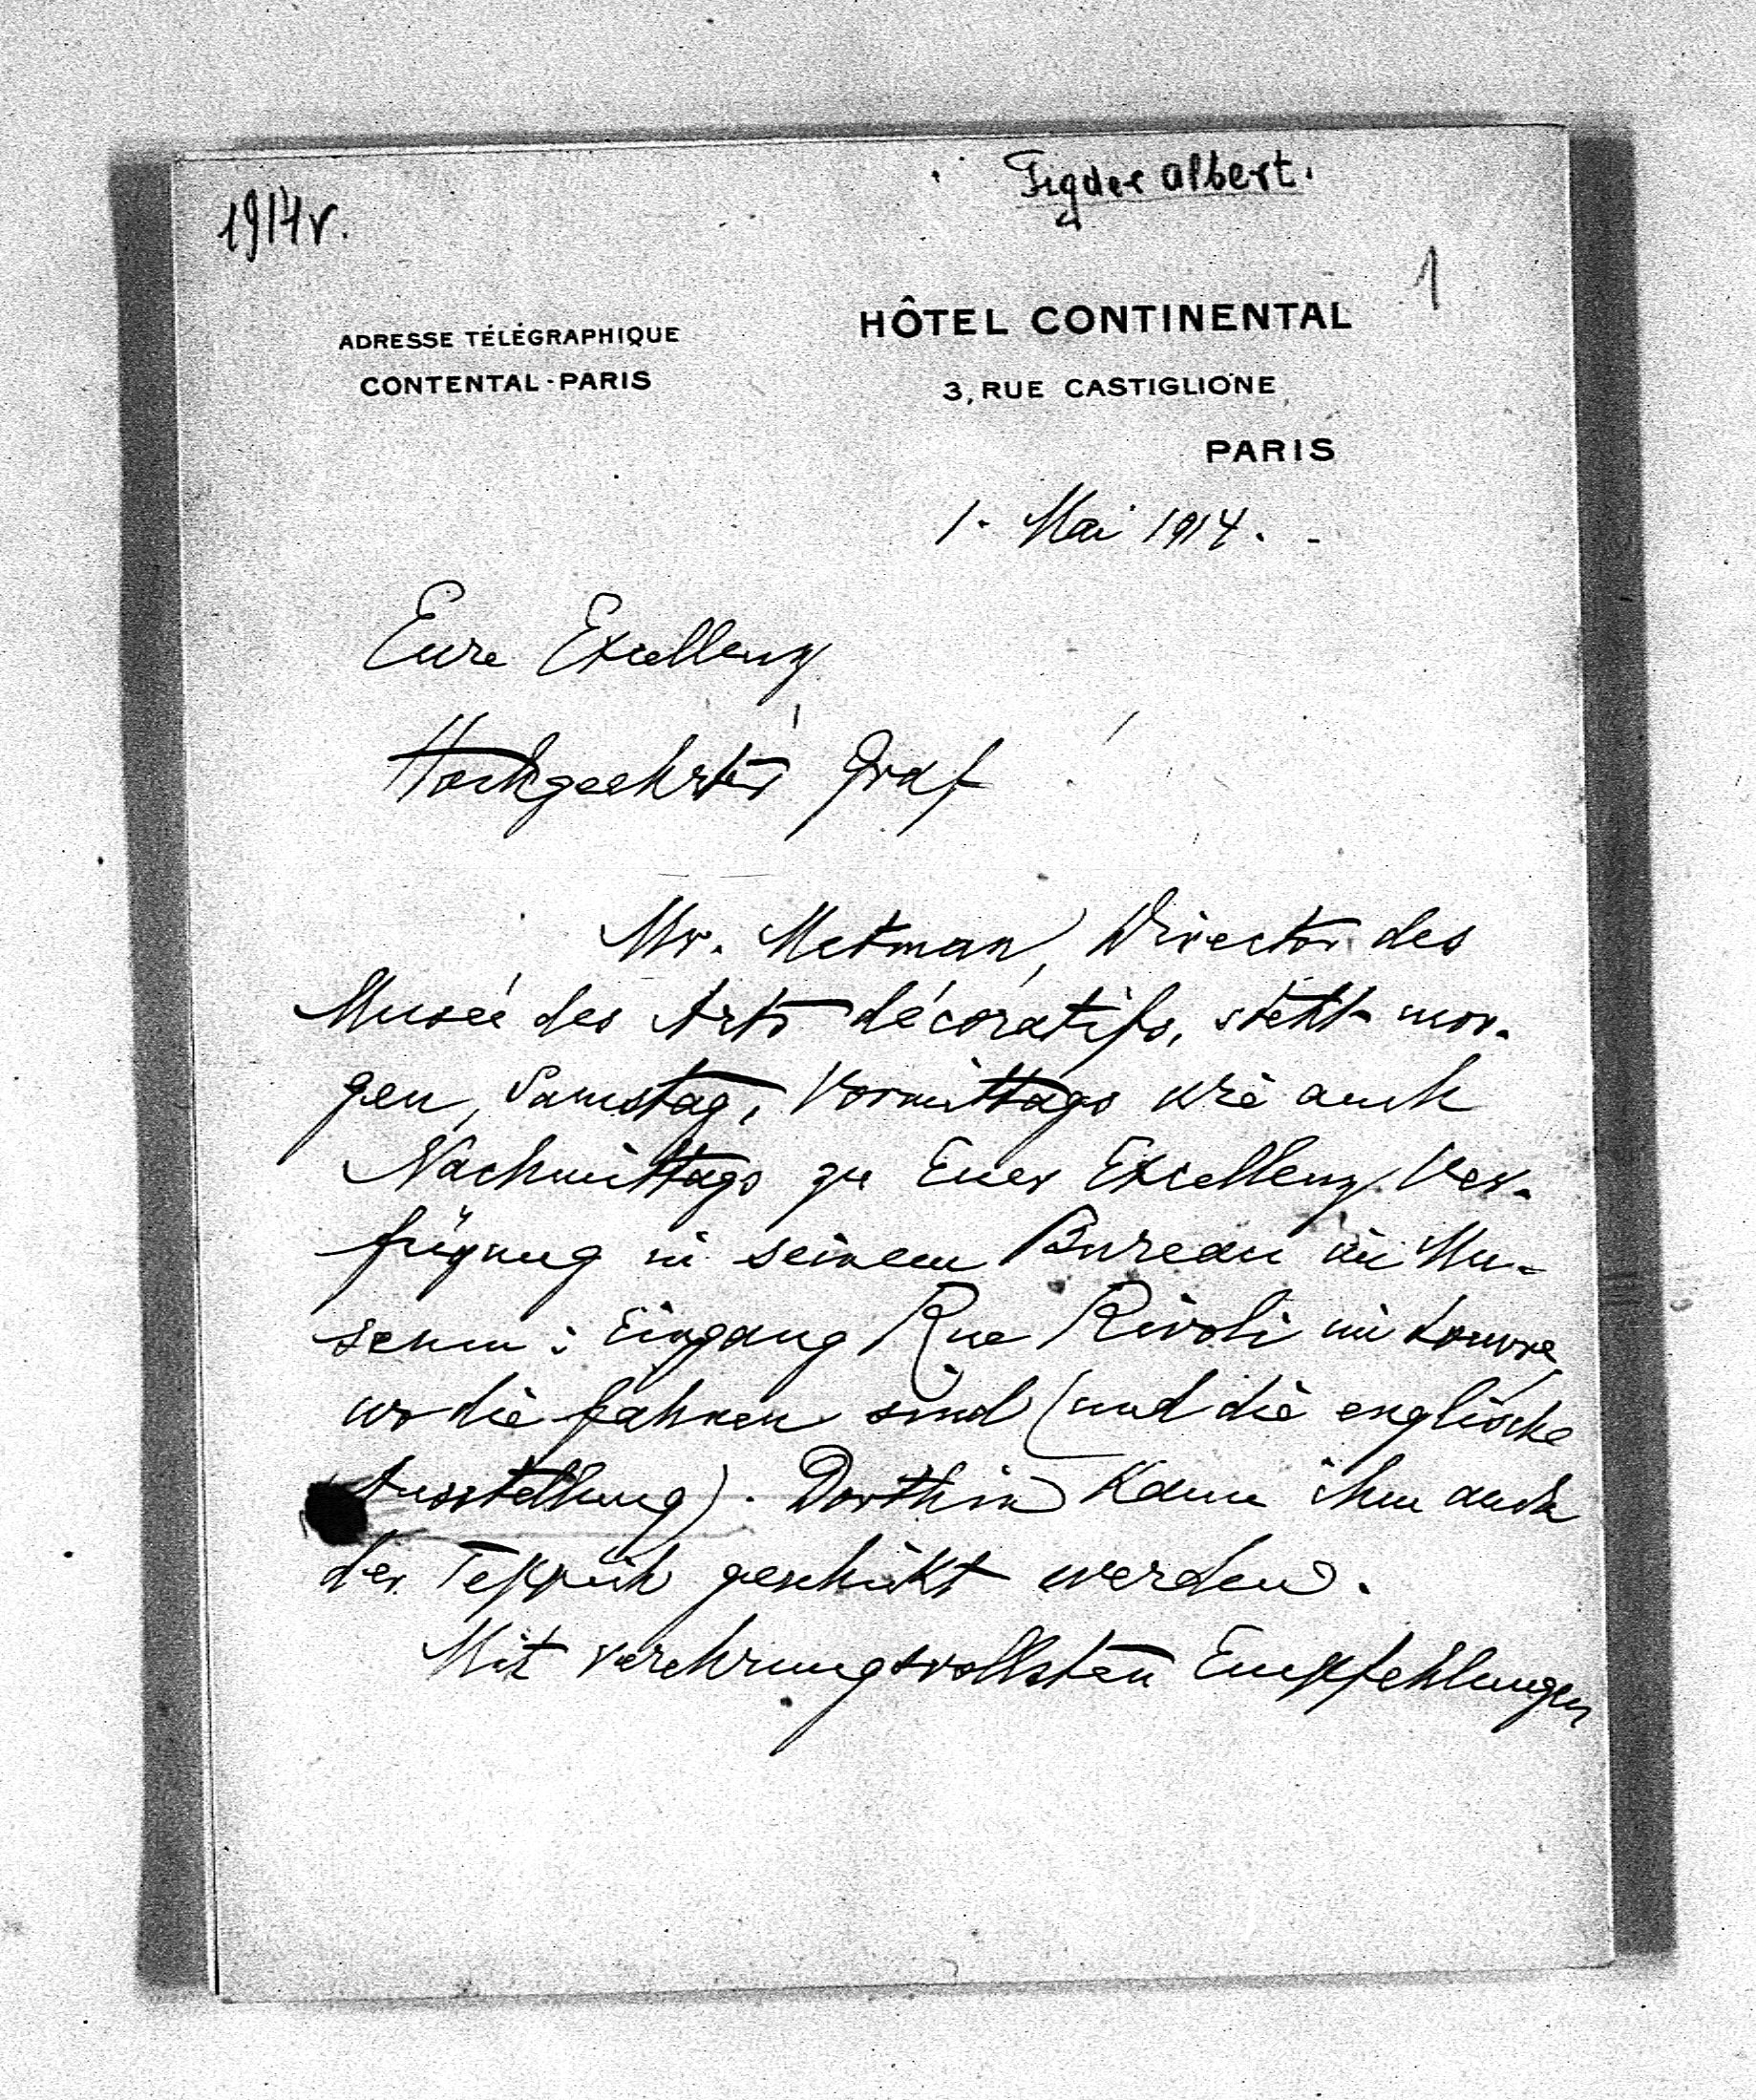 1914r.
Figdor Albert.
1
ADRESSE TÉLÉGRAPHIQUE
CONTENTAL-PARIS
HÔTEL CONTINENTAL
3, RUE CASTIGLIONE
PARIS
1. Mai 1914.
Eure Excellenz
Hochgeehrter Graf
Mr. Metman, Director des
Museé des Arts décoratifs, steht mor-
gen, Samstag, Vormittags wie auch
Nachmittags zu Euer Excellenz Ver-
fügung in seinem Bureau im Mu-
seum: Eingang Rue Rivoli im Louvre,
wo die Fahnen sind (und die englische
Ausstellung). Dorthin kann ihm auch
der Teppich geschikt werden.
Mit verehrungsvollsten Empfehlungen